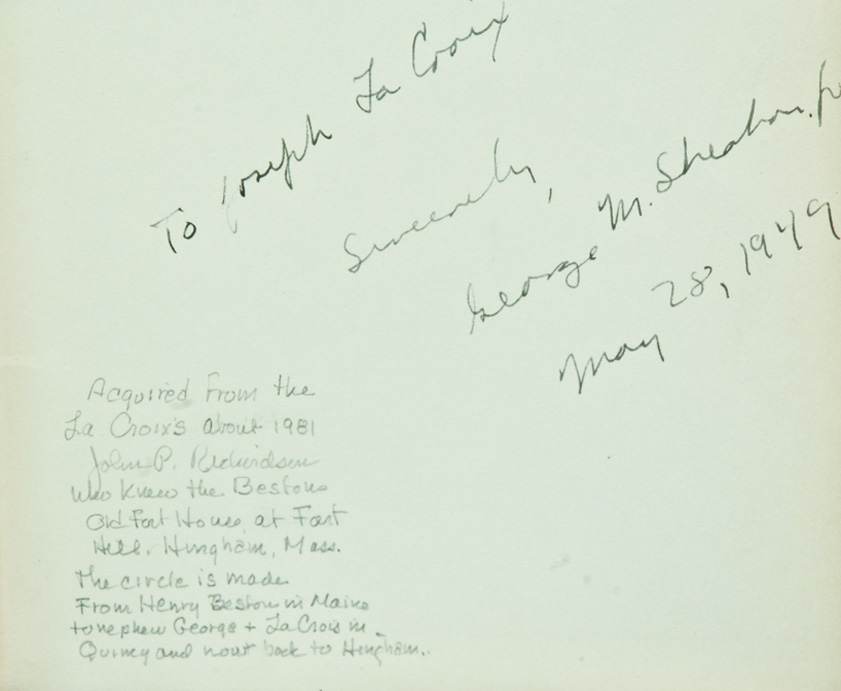 To Joseph La Croix
Sincerely,
George M. Sheahan. Jr
May 28, 1949
Acquired From the
La Croix's about 1981
John P. Richardson
who knew the Bestons
Old Fort House, at Fort
Hill. Hingham, Mass.
The circle is made.
From Henry Beston in Maine
to nephew George + La Crois in
Quincy and now back to Hingham..